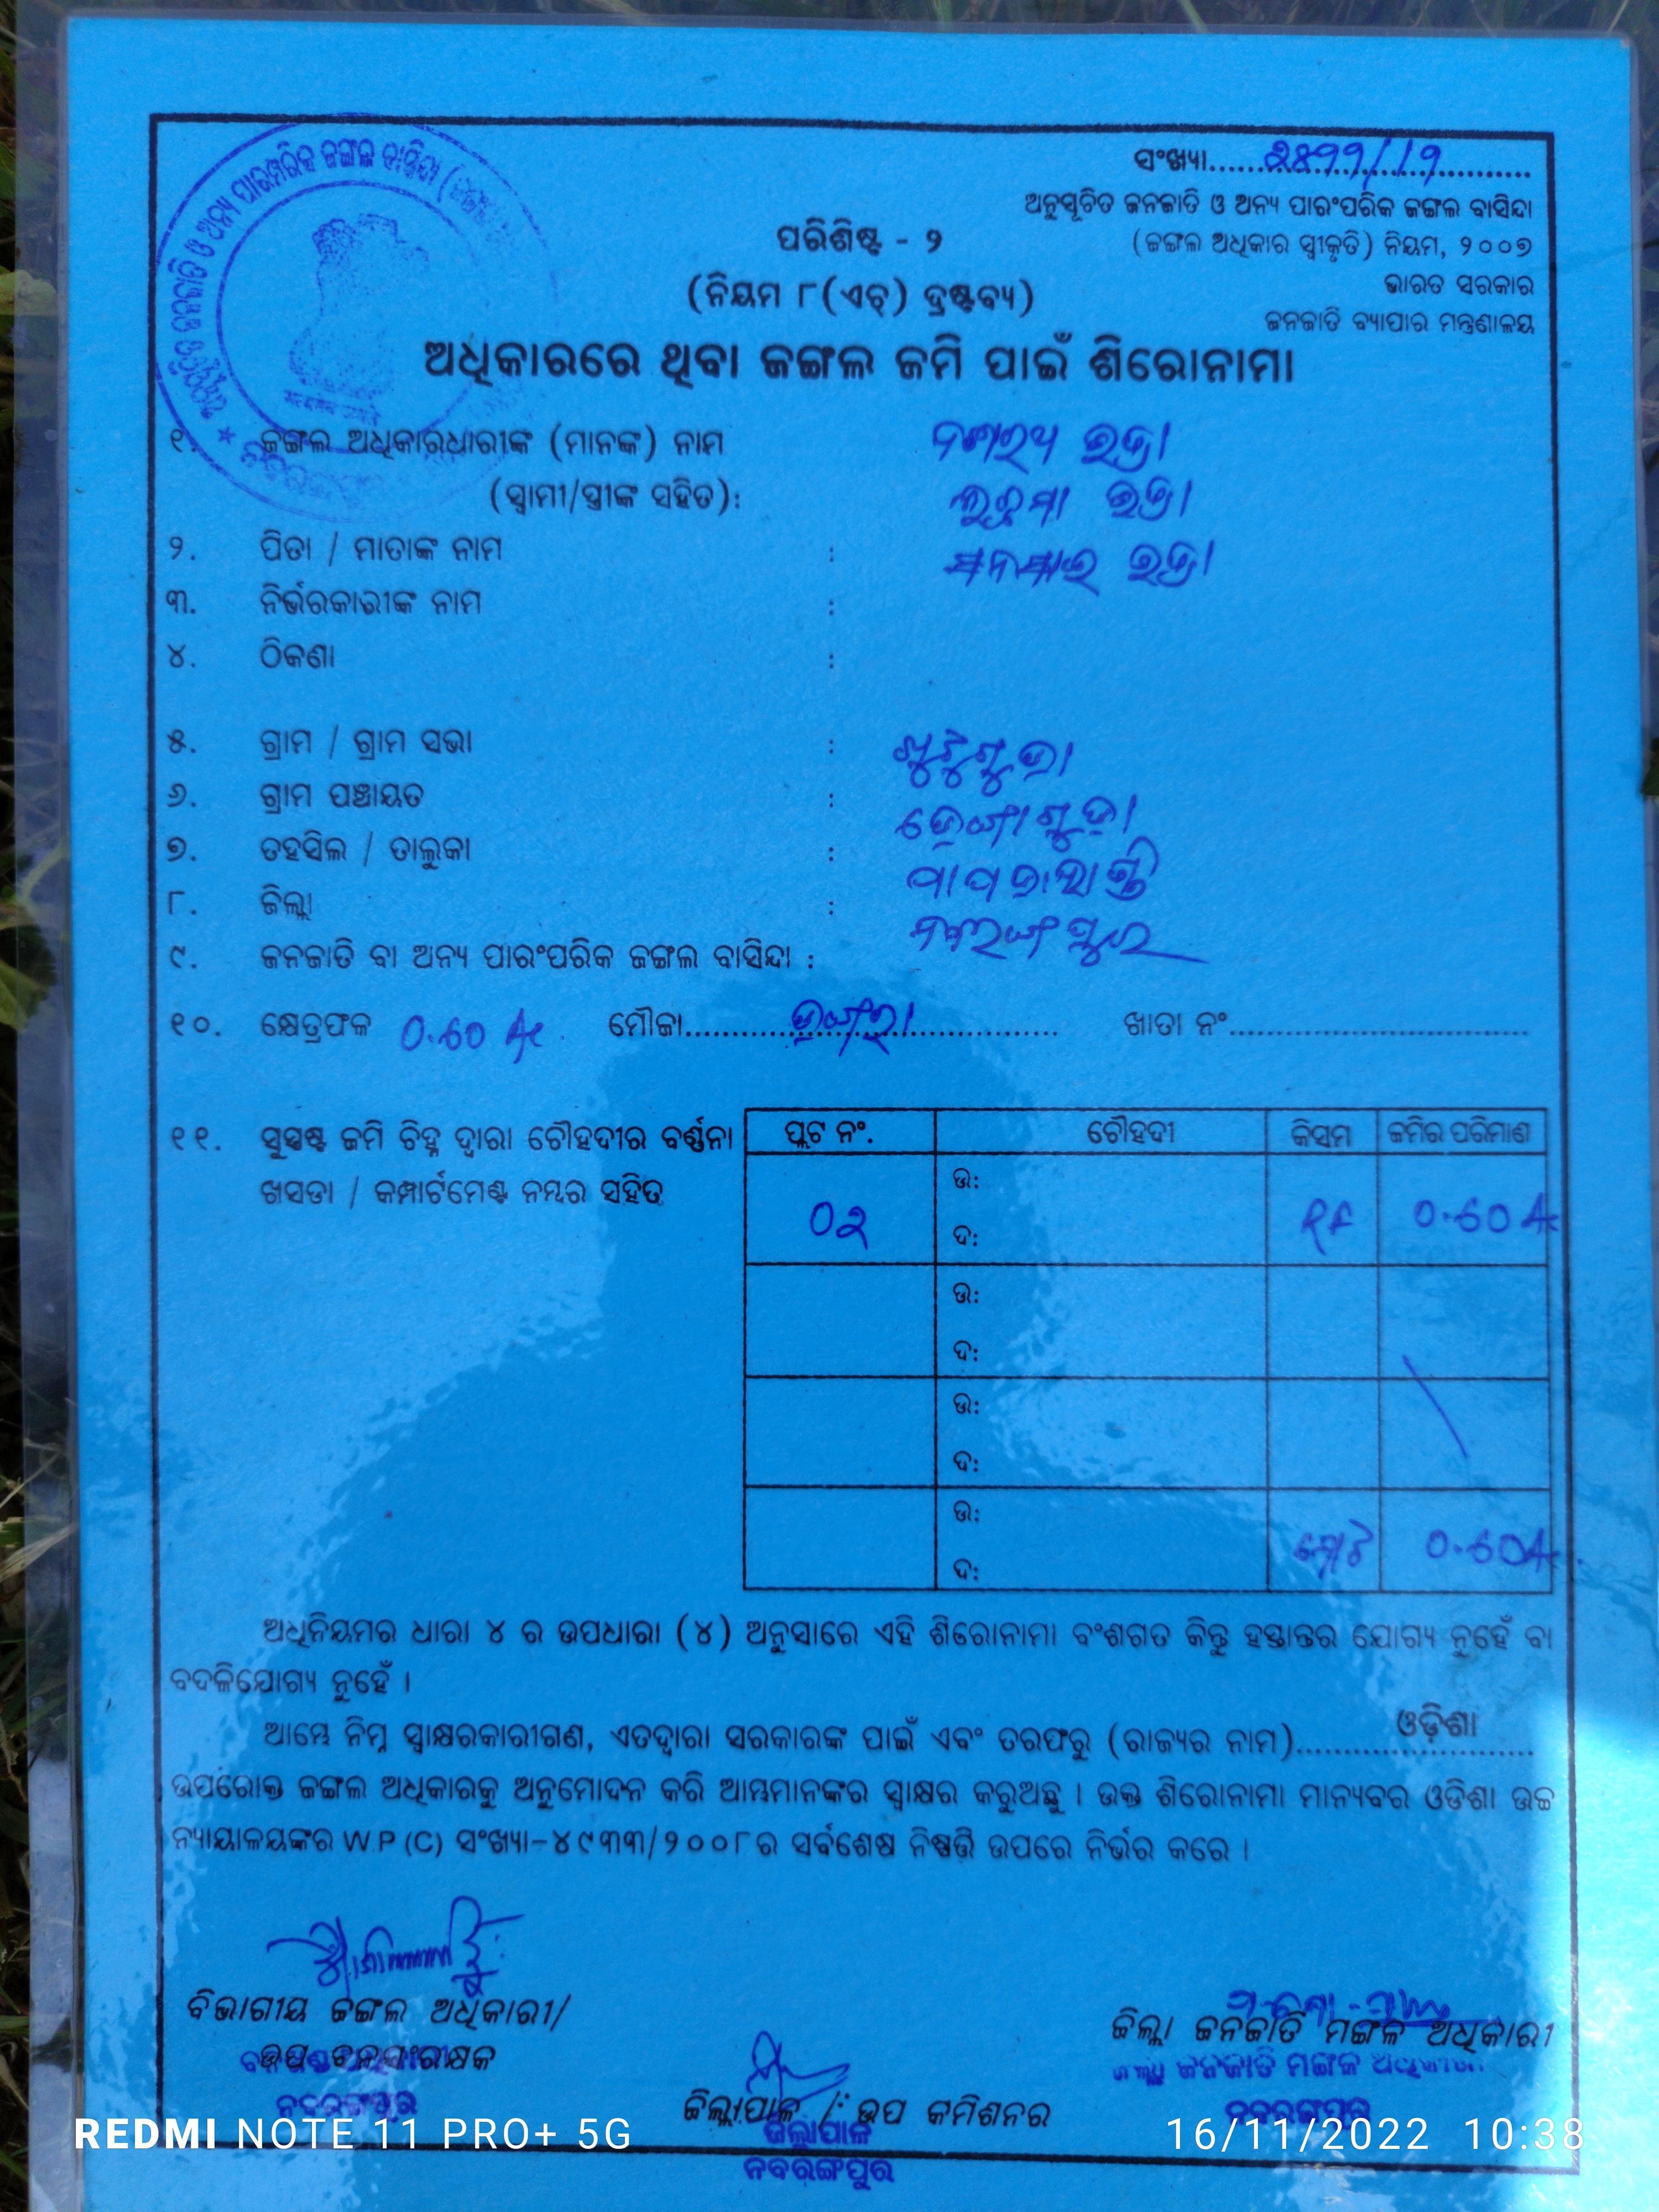 ସଂଖ୍ୟା
ଅନୁସୂଚିତ ଜନଜାତି ଓ ଅନ୍ୟ ପାରଂପରିକ ଜଙ୍ଗଲ ବାସିନ୍ଦା
(ଜଙ୍ଗଲ ଅଧିକାର ସ୍ୱୀକୃତି) ନିୟମ, ୨୦୦୭
ଭାରତ ସରକାର
ଜନଜାତି ବ୍ୟାପାର ମନ୍ତ୍ରଣାଳୟ
ପରିଶିଷ୍ଟ - ୨
(ନିୟମ ୮(ଏଚ୍) ଦ୍ରଷ୍ଟବ୍ୟ)
ଅଧିକାରରେ ଥିବା ଜଙ୍ଗଲ ଜମି ପାଇଁ ଶିରୋନାମା
୧. ଜଙ୍ଗଲ ଅଧିକାରଧାରୀଙ୍କ (ମାନଙ୍କ) ନାମ
(ସ୍ୱାମୀ/ସ୍ତ୍ରୀଙ୍କ ସହିତ):
୨. ପିତା / ମାତାଙ୍କ ନାମ :
୩. ନିର୍ଭରକାରୀଙ୍କ ନାମ :
୪. ଠିକଣା :
୫. ଗ୍ରାମ / ଗ୍ରାମ ସଭା :
୬. ଗ୍ରାମ ପଞ୍ଚାୟତ :
୭. ତହସିଲ / ତାଲୁକା : ପାପଡାହାଣ୍ଡି
୮. ଜିଲ୍ଲା : ନବରଙ୍ଗପୁର
୯. ଜନଜାତି ବା ଅନ୍ୟ ପାରଂପରିକ ଜଙ୍ଗଲ ବାସିନ୍ଦା :
୧୦. କ୍ଷେତ୍ରଫଳ 0.60 Ac ମୌଜା ଖାତା ନଂ
୧୧. ସୁସ୍ପଷ୍ଟ ଜମି ଚିହ୍ନ ଦ୍ୱାରା ଚୌହଦୀର ବର୍ଣ୍ଣନା
ଖସଡା / କମ୍ପାର୍ଟମେଣ୍ଟ ନମ୍ବର ସହିତ
ପ୍ଲଟ ନଂ. ଚୌହଦୀ କିସମ ଜମିର ପରିମାଣ
ଉ:
02 RF 0.60 Ac
ଦ:
ଉ:
ଦ:
ଉ:
ଦ:
ଉ:
ମୋଟ 0.60 Ac
ଦ:
ଅଧିନିୟମର ଧାରା ୪ ର ଉପଧାରା (୪) ଅନୁସାରେ ଏହି ଶିରୋନାମା ବଂଶଗତ କିନ୍ତୁ ହସ୍ତାନ୍ତର ଯୋଗ୍ୟ ନୁହେଁ ବା
ବଦଳିଯୋଗ୍ୟ ନୁହେଁ ।
ଆମ୍ଭେ ନିମ୍ନ ସ୍ୱାକ୍ଷରକାରୀଗଣ, ଏତଦ୍ୱାରା ସରକାରଙ୍କ ପାଇଁ ଏବଂ ତରଫରୁ (ରାଜ୍ୟର ନାମ) ଓଡ଼ିଶା
ଉପରୋକ୍ତ ଜଙ୍ଗଲ ଅଧିକାରକୁ ଅନୁମୋଦନ କରି ଆମ୍ଭମାନଙ୍କର ସ୍ୱାକ୍ଷର କରୁଅଛୁ । ଉକ୍ତ ଶିରୋନାମା ମାନ୍ୟବର ଓଡିଶା ଉଚ୍ଚ
ନ୍ୟାୟାଳୟଙ୍କର W.P (C) ସଂଖ୍ୟା-୪୯୩୩/୨୦୦୮ର ସର୍ବଶେଷ ନିଷ୍ପତ୍ତି ଉପରେ ନିର୍ଭର କରେ ।
ବିଭାଗୀୟ ଜଙ୍ଗଲ ଅଧିକାରୀ/
ଉପ ବନସଂରକ୍ଷକ
ନବରଙ୍ଗପୁର
ଜିଲ୍ଲାପାଳ / ଉପ କମିଶନର
ଜିଲ୍ଲାପାଳ
ନବରଙ୍ଗପୁର
ଜିଲ୍ଲା ଜନଜାତି ମଙ୍ଗଳ ଅଧିକାରୀ
ଜିଲ୍ଲା ଜନଜାତି ମଙ୍ଗଳ ଅଧିକାରୀ
ନବରଙ୍ଗପୁର
REDMI NOTE 11 PRO+ 5G
16/11/2022 10:38